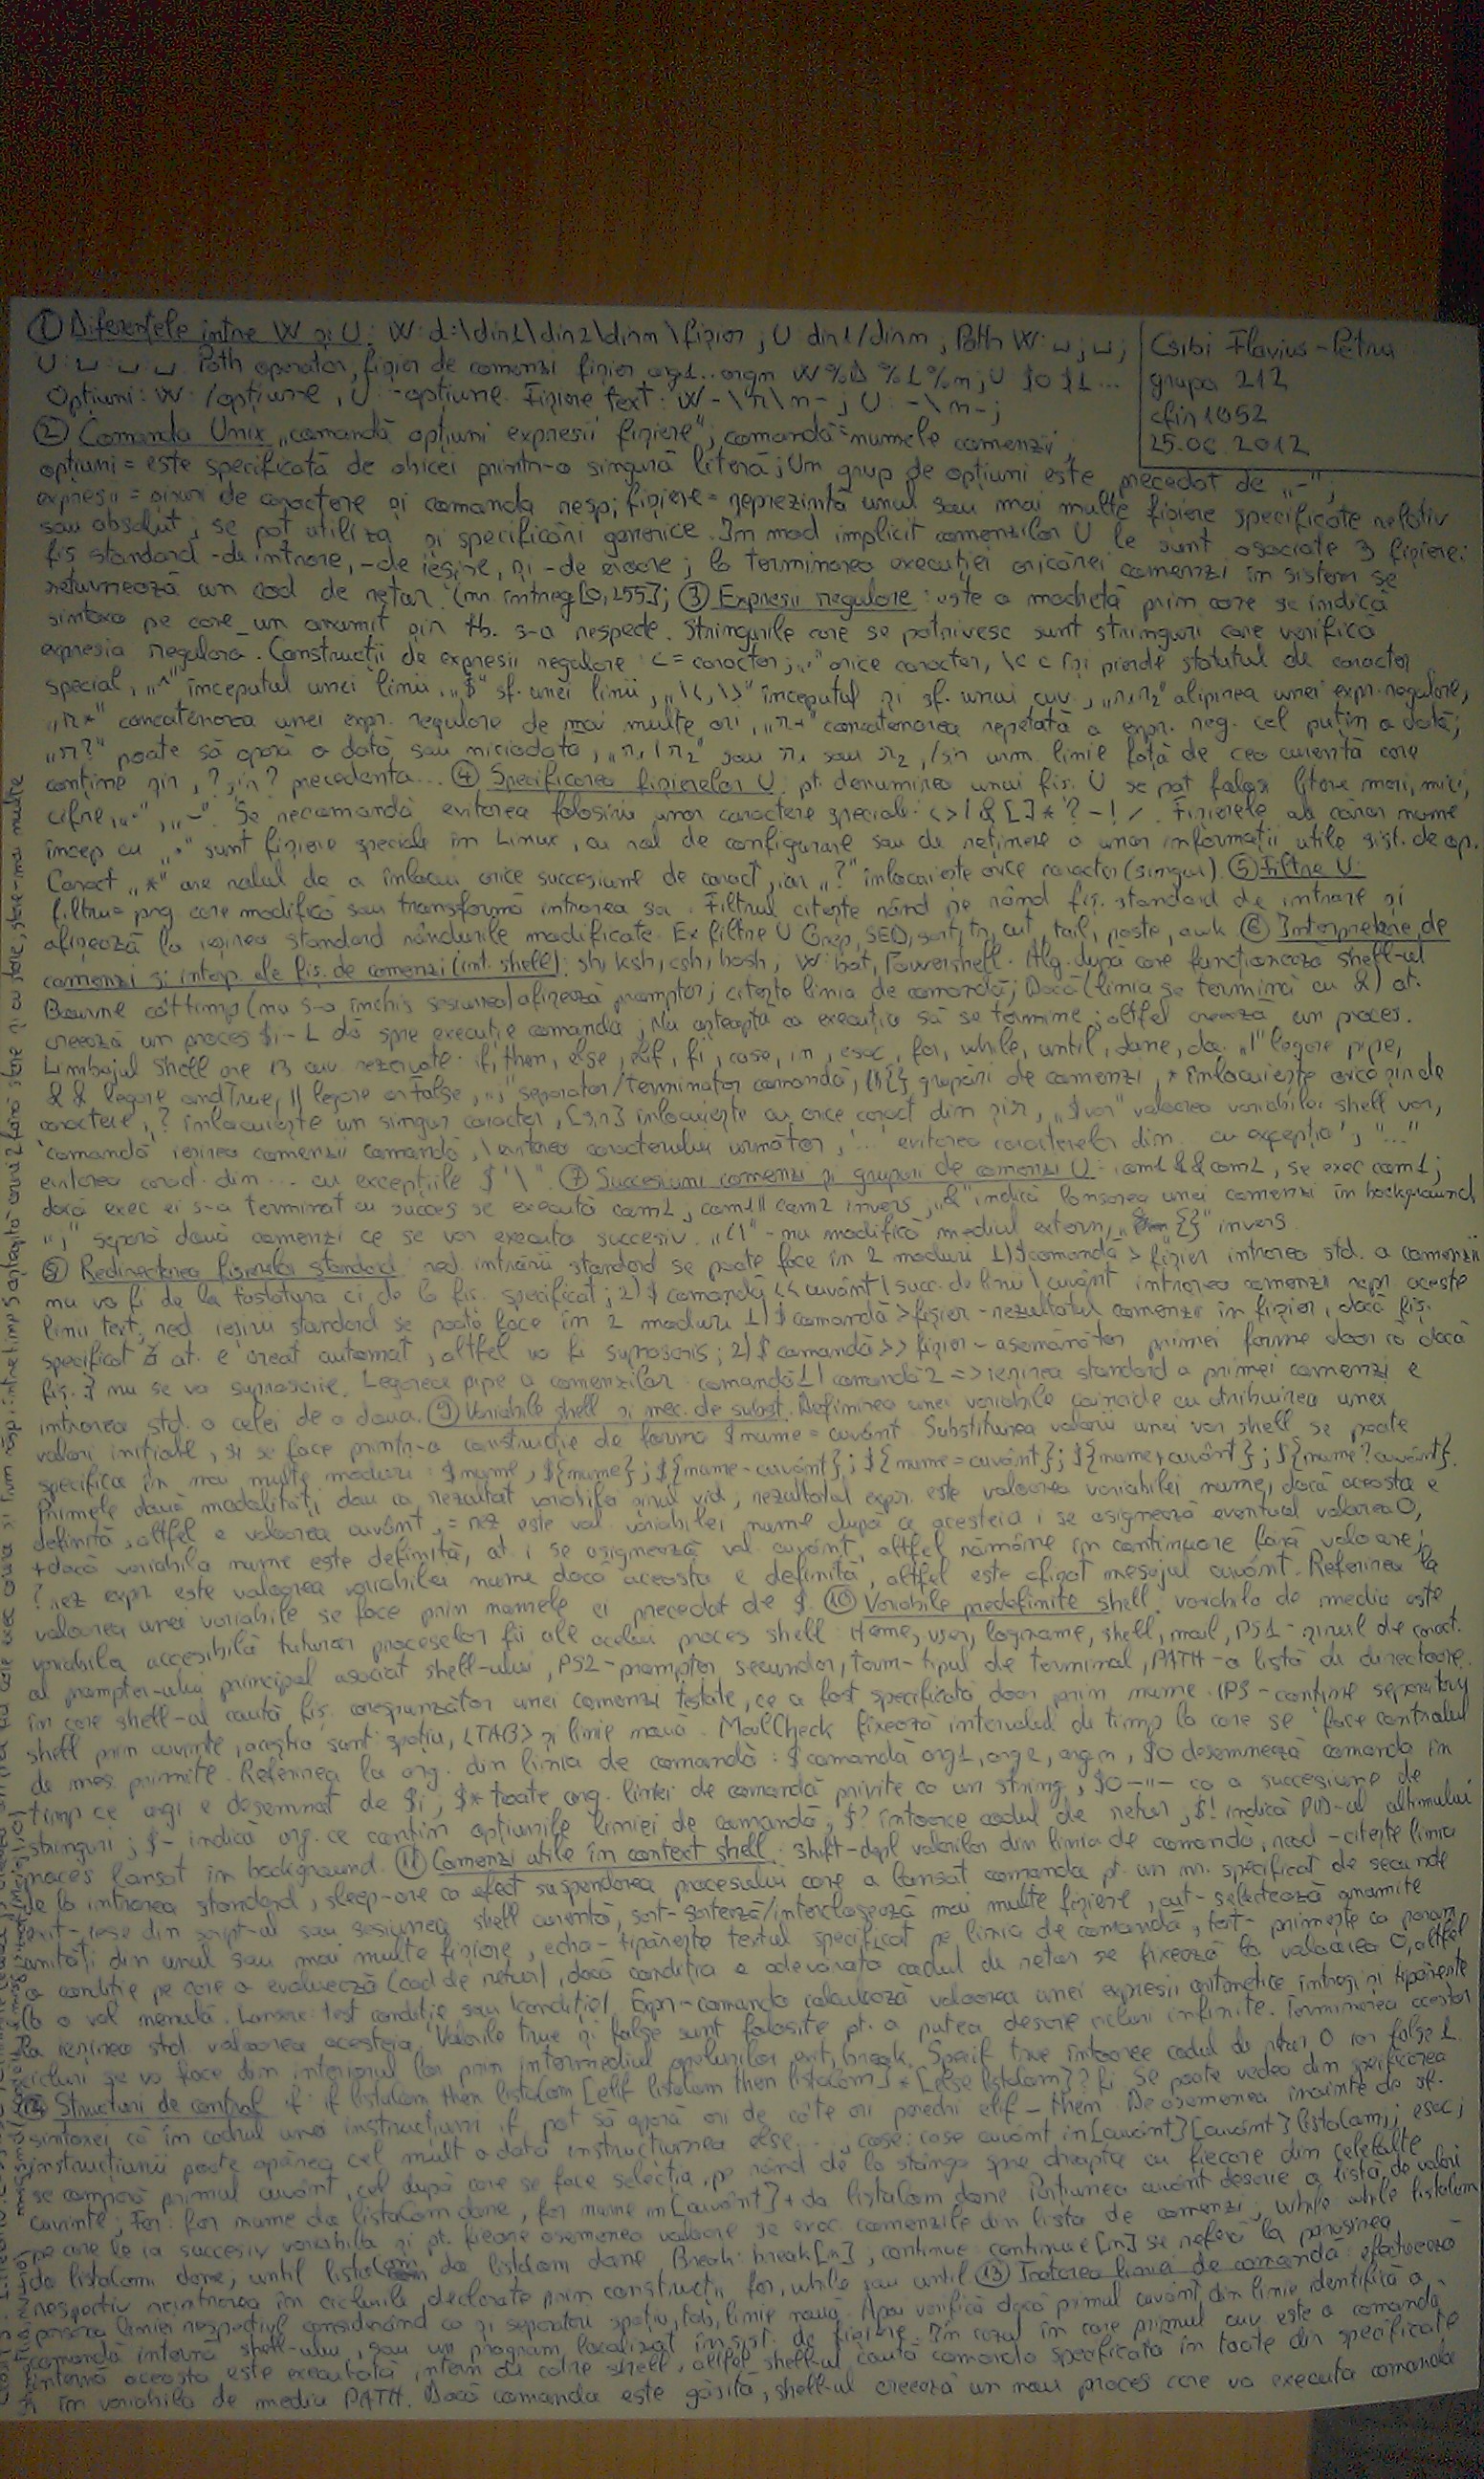 ① Diferențele între W și U: W: d:\din1\din2\dinm\fișier ; U din1/dinm ; Path W: ;
Csibi Flavius-Petru
U: Path operator, fișier de comenzi fișier arg1..argm W %0 %1 %m ; U $0 $1 ...
grupa 212
Opțiuni: W: /opțiune, U: -opțiune. Fișiere text: W -\r\n- ; U: -\n-;
cfin1052
② Comanda Unix „comandă opțiuni expresii fișiere"; comandă = numele comenzii,
25.06.2012
opțiuni = este specificată de obicei printr-o singură literă; Un grup de opțiuni este precedat de „-";
expresii = șiruri de caractere și comanda resp; fișiere = reprezintă unul sau mai multe fișiere specificate relativ
sau absolut; se pot utiliza și specificări generice. Im mod implicit comenzilor U le sunt asociate 3 fișiere:
fiș standard -de intrare, -de ieșire, și -de eroare; la terminarea execuției oricărei comenzi în sistem se
returnează un cod de retur (nr. întreg [0,255]; ③ Expresii regulare: este o machetă prin care se indică
sintaxa pe care un anumit șir tb. s-o respecte. Stringurile care se potrivesc sunt stringuri care verifică
expresia regulara. Construcții de expresii regulare: c = caracter; „." orice caracter, \c c își pierde statutul de caracter
special, „^" începutul unei linii, „$" sf. unei linii, „\<,\>" începutul și sf. unui cuv, „r1r2" alipirea unei expr. regulare,
„r*" concatenarea unei expr. regulare de mai multe ori, „r+" concatenarea repetată a expr. reg. cel puțin o dată;
„r?" poate să apară o dată sau niciodată, „r1|r2" sau r1 sau r2, /șir urm. linie față de cea curentă care
conține șir, ?șir? precedenta... ④ Specificarea fișierelor U: pt. denumirea unui fiș. U se pot folosi litere mari, mici,
cifre, „.", „-". Se recomandă evitarea folosirii unor caractere speciale: < > | & [ ] * ? - ! /. Fișierele ale căror nume
încep cu „." sunt fișiere speciale în Linux, cu rol de configurare sau de reținere a unor informații utile sist. de op.
Caract „*" are rolul de a înlocui orice succesiune de caract, iar „?" înlocuiește orice caracter (singur). ⑤ Filtre U:
filtru = prg care modifică sau transformă intrarea sa. Filtrul citește rând pe rând fiș. standard de intrare și
afișează la ieșirea standard rândurile modificate. Ex filtre U Grep, SED, sort, tr, cut, tail, paste, awk ⑥ Interpretare de
comenzi și interp. ale fiș. de comenzi (int. shell): sh, ksh, csh, bash, W: bat, Powershell. Alg. după care funcționează shell-ul
Bourne cât timp (nu s-a închis sesiunea) afișează prompter; citește linia de comandă; Dacă (linia se termină cu &) at.
creează un proces și-L dă spre execuție comanda; Nu așteaptă ca execuția să se termine; altfel creează un proces.
Limbajul Shell are 13 cuv. rezervate: if, then, else, elif, fi, case, in, esac, for, while, until, done, do. „|" legare pipe,
&& legare andTrue, || legare orFalse, „;" separator/terminator comandă, (){} grupări de comenzi, * înlocuiește orice șir de
caractere, ? înlocuiește un singur caracter, [șir] înlocuiește cu orice caract din șir, „$var" valoarea variabilei shell var,
`comandă` ieșirea comenzii comandă, \ evitarea caracterului următor, '...' evitarea caracterelor din cu excepția ', "..."
evitarea caract. din ... cu excepțiile $ ` \ ". ⑦ Succesiuni comenzi și grupuri de comenzi U: com1 && com2, se exec com1;
dacă exec ei s-a terminat cu succes se execută com2, com1 || com2 invers, „&" indică lansarea unei comenzi în background,
„;" separă două comenzi ce se vor executa succesiv. „()" - nu modifică mediul extern, „{}" invers
⑧ Redirectarea fișierelor standard: red. intrării standard se poate face în 2 moduri 1) $comandă > fișier intrarea std. a comenzii
nu va fi de la tastatura ci de la fiș. specificat; 2) $ comandă << cuvânt \ succ. de linii \ cuvânt intrarea comenzii repr. aceste
linii text; red. ieșirii standard se poate face în 2 moduri 1) $ comandă > fișier - rezultatul comenzii în fișier, dacă fiș.
specificat at. e creat automat, altfel va fi suprascris; 2) $ comandă >> fișier - asemănător primei forme doar că dacă
fiș. ∃ nu se va suprascrie. Legarea pipe a comenzilor: comandă1 | comandă2 => ieșirea standard a primei comenzi e
intrarea std. a celei de a doua. ⑨ Variabile shell și mec. de subst. Definirea unei variabile coincide cu atribuirea unei
valori inițiale, și se face printr-o construcție de forma $nume = cuvânt. Substituirea valorii unei var shell se poate
specifica în mai multe moduri: $nume, ${nume}; ${nume-cuvânt}; ${nume=cuvânt}; ${nume+cuvânt}; ${nume?cuvânt}.
Primele două modalități dau ca rezultat variabila șirul vid; rezultatul expr. este valoarea variabilei nume, dacă aceasta e
definită, altfel e valoarea cuvânt, = rez este val variabilei nume după ce acesteia i se asignează eventual valoarea 0,
+ dacă variabila nume este definită, at. i se asignează val cuvânt, altfel rămâne în continuare fără valoare;
? rez expr este valoarea variabilei nume dacă aceasta e definită, altfel este afișat mesajul cuvânt. Referirea la
valoarea unei variabile se face prin numele ei precedat de $. ⑩ Variabile predefinite shell: variabila de mediu este
variabila accesibilă tuturor proceselor fii ale acelui proces shell: Home, user, logname, shell, mail, PS1 - șirul de caract.
al prompter-ului principal asociat shell-ului, PS2 - prompter secundar, term - tipul de terminal, PATH - o listă de directoare
în care shell-ul caută fiș. corespunzător unei comenzi tastate, ce a fost specificată doar prin nume. IFS - conține separatorii
shell prin cuvinte, aceștia sunt: spațiu, <TAB> și linie nouă. MailCheck fixează intervalul de timp la care se face controlul
de mes. primite. Referirea la arg. din linia de comandă: $ comandă arg1, arg2, argm, $0 desemnează comanda în
timp ce argi e desemnat de $i, $* toate arg. liniei de comandă privite ca un string, $@ -"- ca o succesiune de
stringuri; $- indică arg. ce conțin opțiunile liniei de comandă, $? întoarce codul de retur, $! indică PID-ul ultimului
proces lansat în background. ⑪ Comenzi utile în context shell: Shift - depl valorilor din linia de comandă, read - citește linia
de la intrarea standard, sleep - are ca efect suspendarea procesului care a lansat comanda pt. un nr. specificat de secunde
exit - iese din script-ul sau sesiunea shell curentă, sort - sortează/interclasează mai multe fișiere, cut - selectează anumite
unități din unul sau mai multe fișiere, echo - tipărește textul specificat pe linia de comandă, test - primește ca param.
o condiție pe care o evaluează (cod de retur), dacă condiția e adevărata codul de retur se fixează la valoarea 0, altfel
la o val nenulă. Lansare: test condiție sau [condiție]. Expr - comandă calculează valoarea unei expresii aritmetice întregi și tipărește
la ieșirea std. valoarea acesteia. Valorile true și false sunt folosite pt. a putea descrie cicluri infinite. Terminarea acestor
cicluri se va face din interiorul lor prin intermediul apelurilor exit, break. Specif true întoarce codul de retur 0 iar false 1.
⑫ Structuri de control if: if listaCom then listaCom [elif listaCom then listaCom]* [else listaCom]? fi Se poate vedea din specificarea
sintaxei că în cadrul unei instrucțiuni if pot să apară ori de câte ori perechi elif - then. Deasemenea înainte de sf.
instrucțiunii poate apărea cel mult o dată instrucțiunea else..., case: case cuvânt in [cuvânt] [cuvânt] listaCom;; esac;
se compară primul cuvânt, cel după care se face selecția, pe rând de la stânga spre dreapta cu fiecare din celelalte
cuvinte; For: for nume do listaCom done, for nume in [cuvânt]+ do listaCom done. Porțiunea cuvânt descrie o listă de valori
pe care le ia succesiv variabila și pt. fiecare asemenea valoare se exec. comenzile din lista de comenzi; While: while listaCom
do listaCom done; until listaCom do listaCom done. Break: break[n], continue: continue[n] se referă la părăsirea
respectiv reintrarea în ciclurile declarate prin construcții for, while sau until ⑬ Tratarea liniei de comandă: efectuează
parsarea liniei respective considerând ca și separatori spațiu, tab, linie nouă. Apoi verifică dacă primul cuvânt din linie identifică o
comandă internă shell-ului, sau un program localizat în sist. de fișiere. În cazul în care primul cuv este o comandă
internă aceasta este executată intern de către shell, altfel shell-ul caută comanda specificată în toate dir specificate
și în variabila de mediu PATH. Dacă comanda este găsită, shell-ul creează un nou proces care va executa comanda